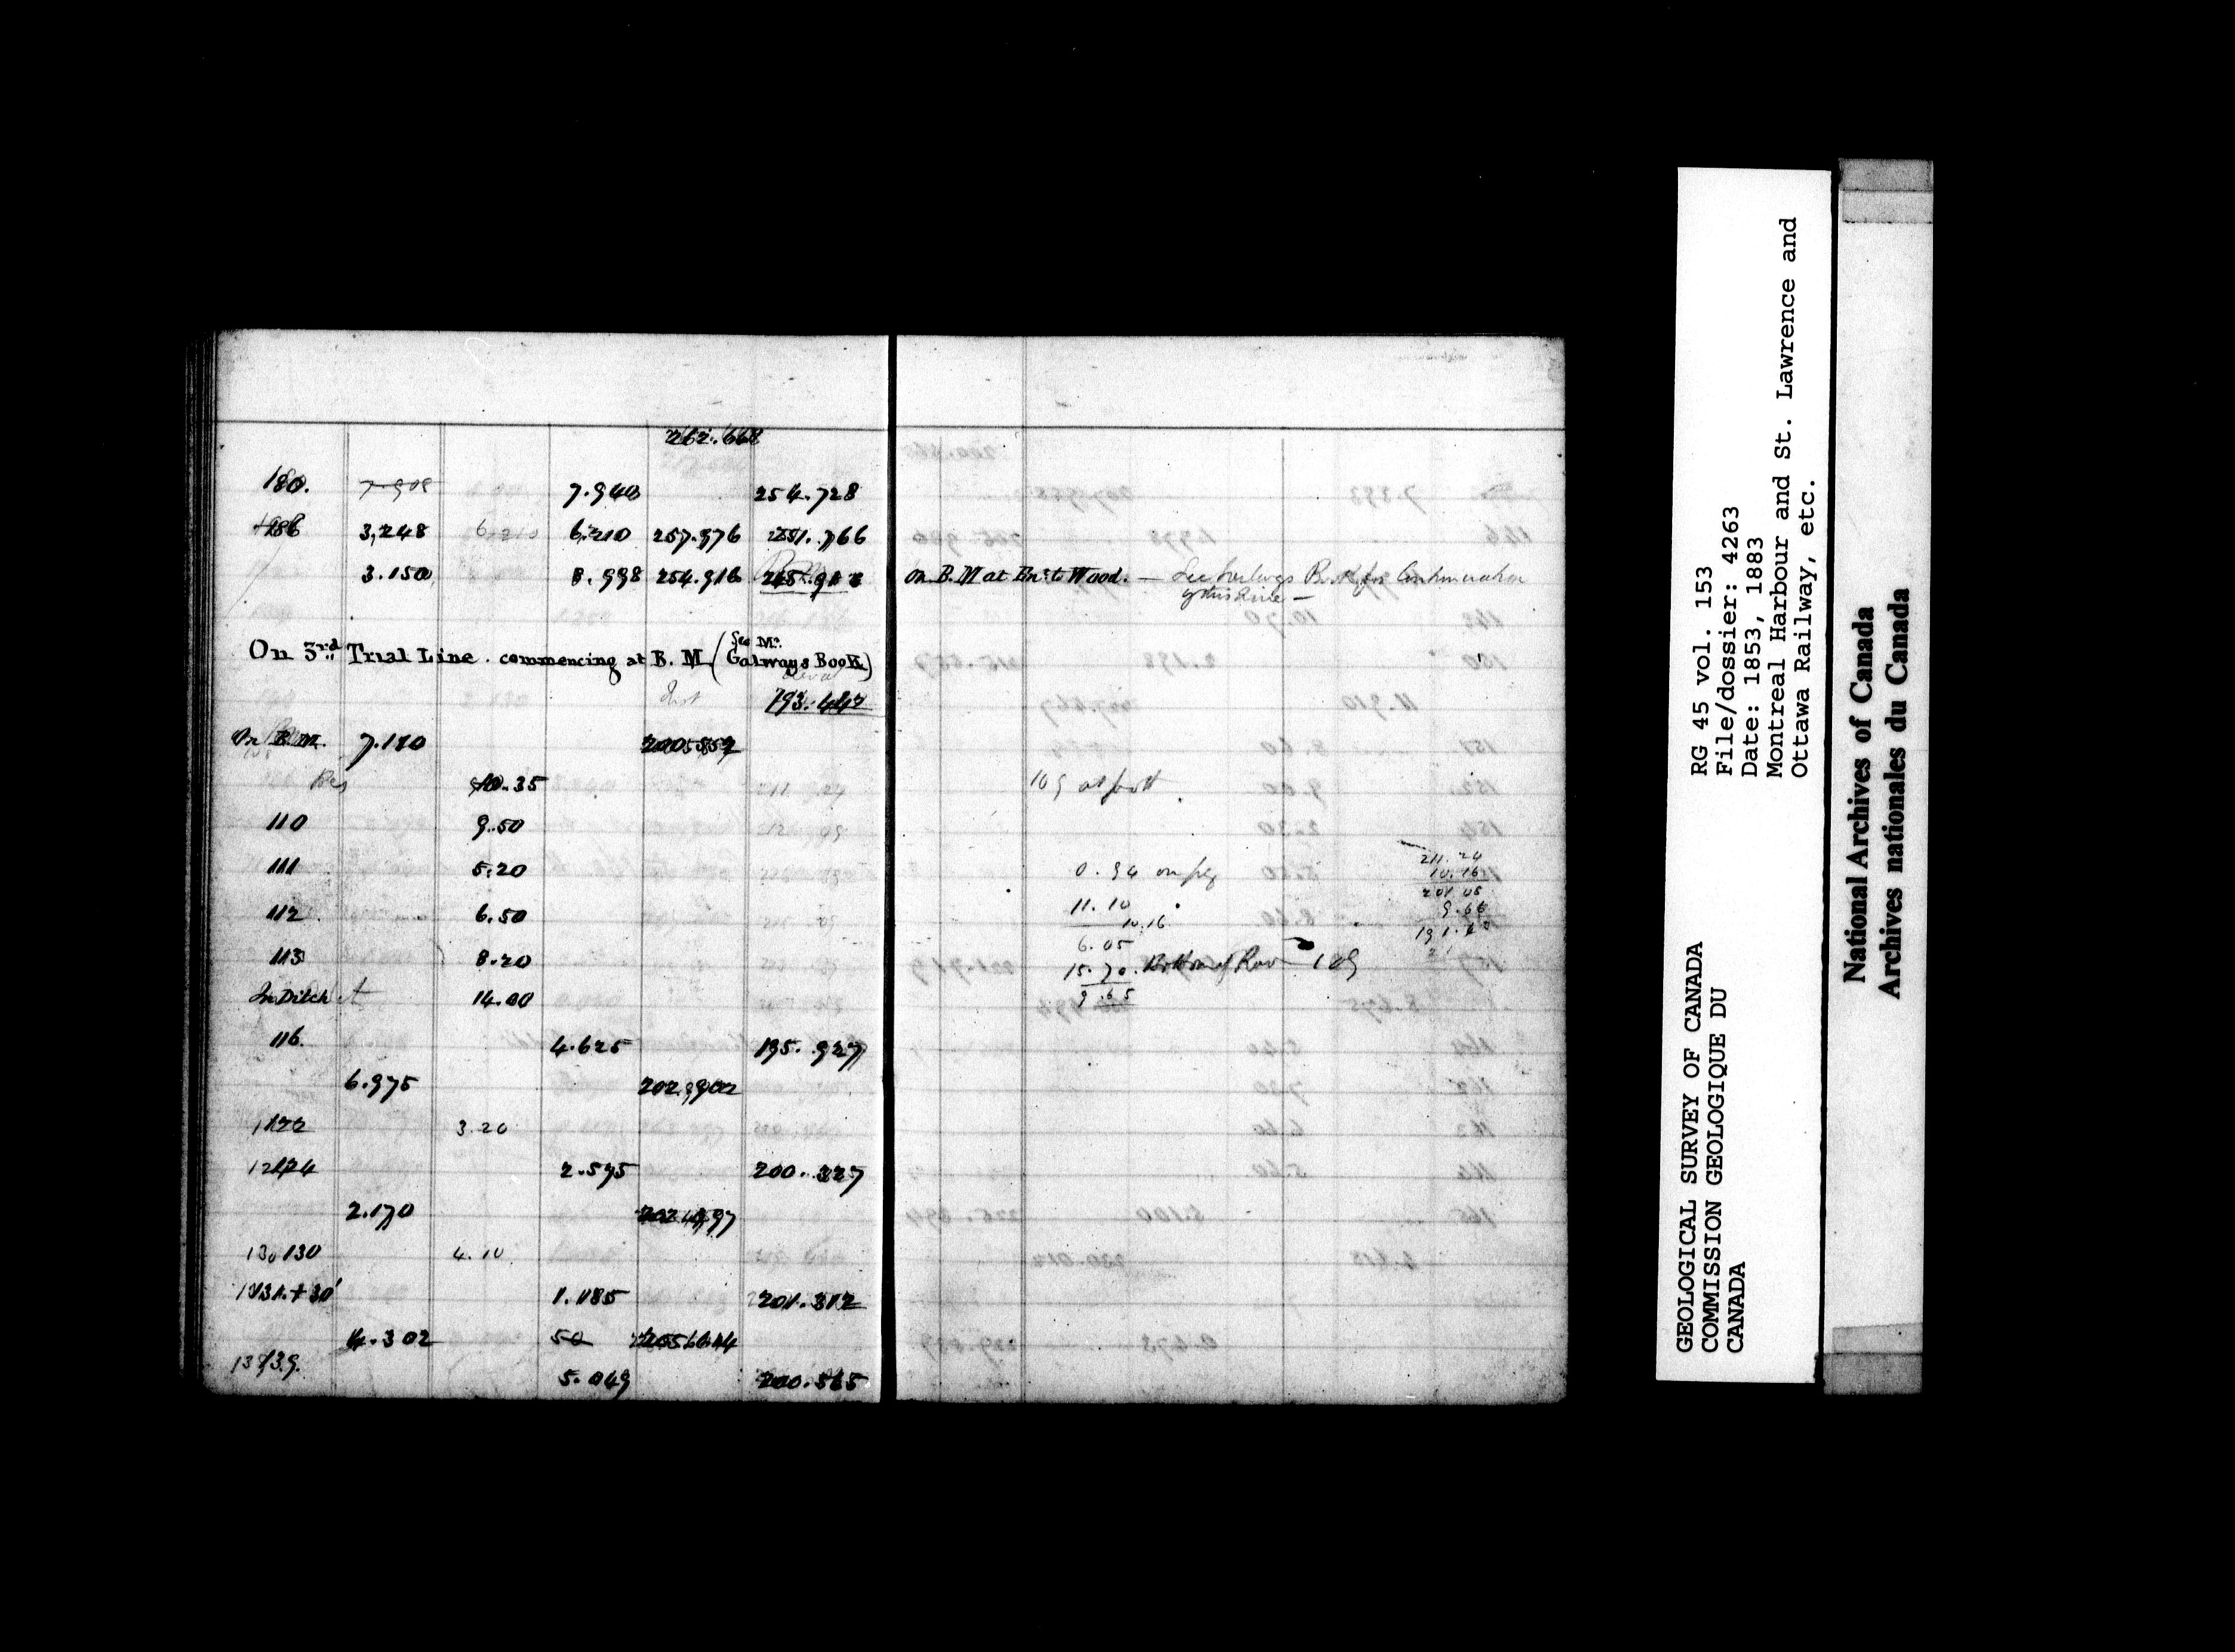 262.668
180. 7.908 7.940 254.728
186 3,248 6.210 6.210 257.976 251.766
3.150 8.998 254.916 245.918 on B.M at En: to Wood. — See Book for Continuation
of this Line —
On 3rd Trial Line. commencing at B.M (See Mr. Galways Book)
193.442
On B.M. 7.110 200.552
10.35 109 at foot
110 9.50
111 5.20 0.94 on peg 211.24
10.16
112 6.50 11.10 201.08
10.16 9.66
6.05
113 8.20 15.70. Bottom of Rav 109
In Ditch 14.00 9.65
116. 4.625 195.927
6.975 202.902
122 3.20
124 2.575 200.327
2.170 202.497
130 4.10
131.+30' 1.185 201.312
4.302 50 205.614
139. 5.049 200.565
GEOLOGICAL SURVEY OF CANADA
COMMISSION GEOLOGIQUE DU
CANADA
RG 45 vol. 153
File/dossier: 4263
Date: 1853, 1883
Montreal Harbour and St. Lawrence and
Ottawa Railway, etc.
National Archives of Canada
Archives nationales du Canada